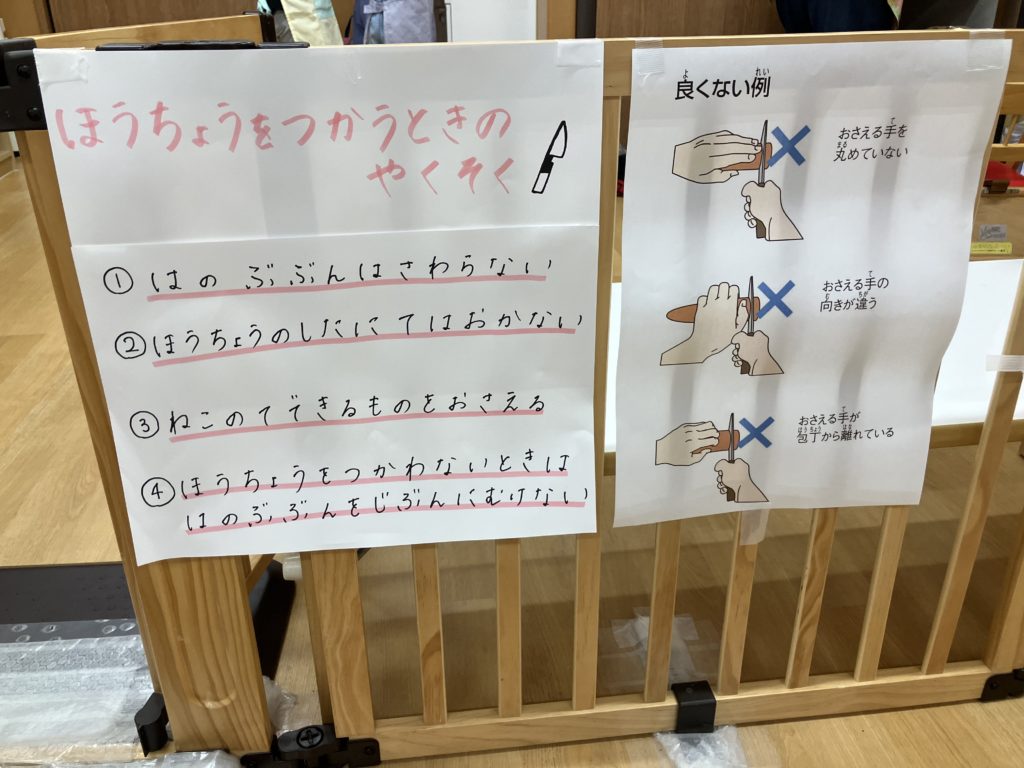 ほうちょうをつかうときの
やくそく
① はの ぶぶんはさわらない
② ほうちょうのしたにてはおかない
③ ねこのてでできるものをおさえる
④ ほうちょうをつかわないときは
はのぶぶんをじぶんにむけない
良くない例
よ れい
おさえる手を
て
丸めていない
まる
おさえる手の
て
向きが違う
む ちが
おさえる手が
て
包丁から離れている
ほうちょう はな